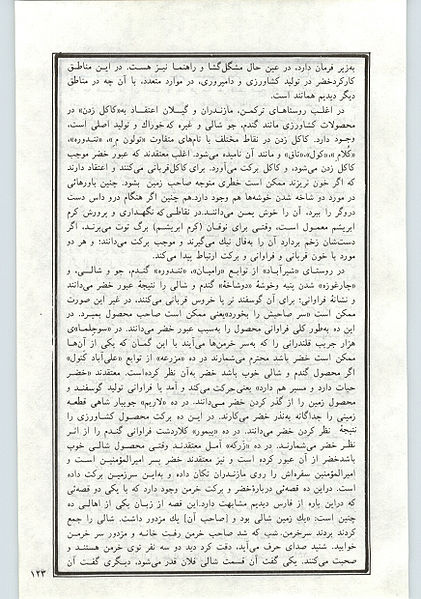 به‌زیر فرمان دارد، در عین حال مشکل‌گشا و راهنما نیـز هست. در ایـن مناطـق
کارکردخضر در تولید کشاورزی و دامپروری، در موارد متعدد، با آن چه در مناطق
دیگر دیدیم همانند است.
در اغلب روستاهای ترکمـن، مازنـدران و گیـلان اعتقـاد به«کاکل زدن» در
محصولات کشاورزی مانند گندم، جو شالی و غیره که خوراك و تولید اصلی است،
وجود دارد. کاکل زدن در نقاط مختلف با نام‌های متفاوت «تولون م»، «تندوره»،
«کلام»، «کول»، «تاق» و مانند آن نامیده می‌شود. اغلب معتقدند که عبور خضر موجب
کاکل زدن می‌شود، و کاکل برکت می‌آورد. برای کاکل‌قربانی می‌کنند و اعتقاد دارند
که اگر خون نریزند ممکن است خطری متوجه صاحب زمین بشود. چنین باورهائی
در مورد دو شاخه شدن خوشه‌ها هم وجود دارد.هم چنین اگر هنگام درو داس دست
دروگر را ببرد، آن را خوش یمن می‌دانند.در نقاطی که نگهـداری و پرورش کرم
ابریشم معمول است، وقتی برای نوغان (کرم ابریشم) برگ توت می‌برند، اگر
دست‌شان زخم بردارد آن را به‌فال نیك می‌گیرند و موجب برکت می‌دانند؛ و هر دو
مورد با خون قربانی و فراوانی و برکت ارتباط پیدا می‌کند.
در روستای «شیرآبـاد» از توابـع «رامیـان»، «تنـدوره» گنـدم، جو و شالـی، و
«چارغوزه» شدن پنبه وخوشهٔ «دوشاخهٔ» گندم و شالی را نتیجهٔ عبور خضر می‌دانند
و نشانهٔ فراوانی؛ برای آن گوسفند نر یا خروس قربانی می‌کنند، در غیر این صورت
ممکن است «سر صاحبش را بخورد»یعنی ممکن است صاحب محصول بمیرد. در
این ده به‌طور کلی فراوانی محصول را به‌سبب عبور خضر می‌دانند. در «سوچلما»ی
هزار جریب قلندرانی را که به‌سر خرمن‌ها می‌آیند با این گمان که یکی از آن‌هـا
ممکن است خضر باشد محترم می‌شمارند در ده «مزرعه» از توابع «علی‌آباد کتول»
اگر محصول گندم و شالی خوب باشد خضر به‌آن نظر کرده‌است. معتقدند «خضـر
حیات دارد و مسیر هم دارد» یعنی حرکت می‌کند و آمد یا فراوانی تولید گوسفنـد و
محصول زمین را از گذر کردن خضر می‌دانند. در ده «لاریم» جویبار شاهی قطعـه
زمینی را جداگانه به‌نذر خضر می‌کارند. در این ده برکت محصول کشاورزی را
نتیجهٔ نظر کردن خضر می‌دانند. در ده «بیمور» کلاردشت فراوانی گندم را از اثـر
نظـر خضر می‌شمارنـد. در ده «زرکه» آمـل معتقدنـد وقتـی محصول شالـی خوب
باشدخضر از آن عبور کرده است و نیز معتقدند خضر پسر امیرالمؤمنین است و
امیرالمؤمنین سفره‌اش را روی مازندران تکان داده و به‌این سرزمین برکت داده
است. دراین ده قصه‌ئی دربارهٔ خضر و برکت خرمن وجود دارد که با یکی دو قصه‌ئی
که دراین باره از فارس دیدیم مشابهت دارد.این قصه از زبان یکی از اهالی ده
چنین است: «یك زمین شالی بود و [صاحب آن] یك مزدور داشت. شالی را جمع
کردند بردند سرخرمن. شب که شد صاحب خرمن رفـت خانـه و مزدور سر خرمـن
خوابید. شنید صدای حرف می‌آید، دقت کرد دید دو سه نفر توی خرمن هستنـد و
صحبت می‌کنند. یکی گفت آن قسمت شالی فلان قدر می‌شود، دیگری گفت آن
۱۲۳